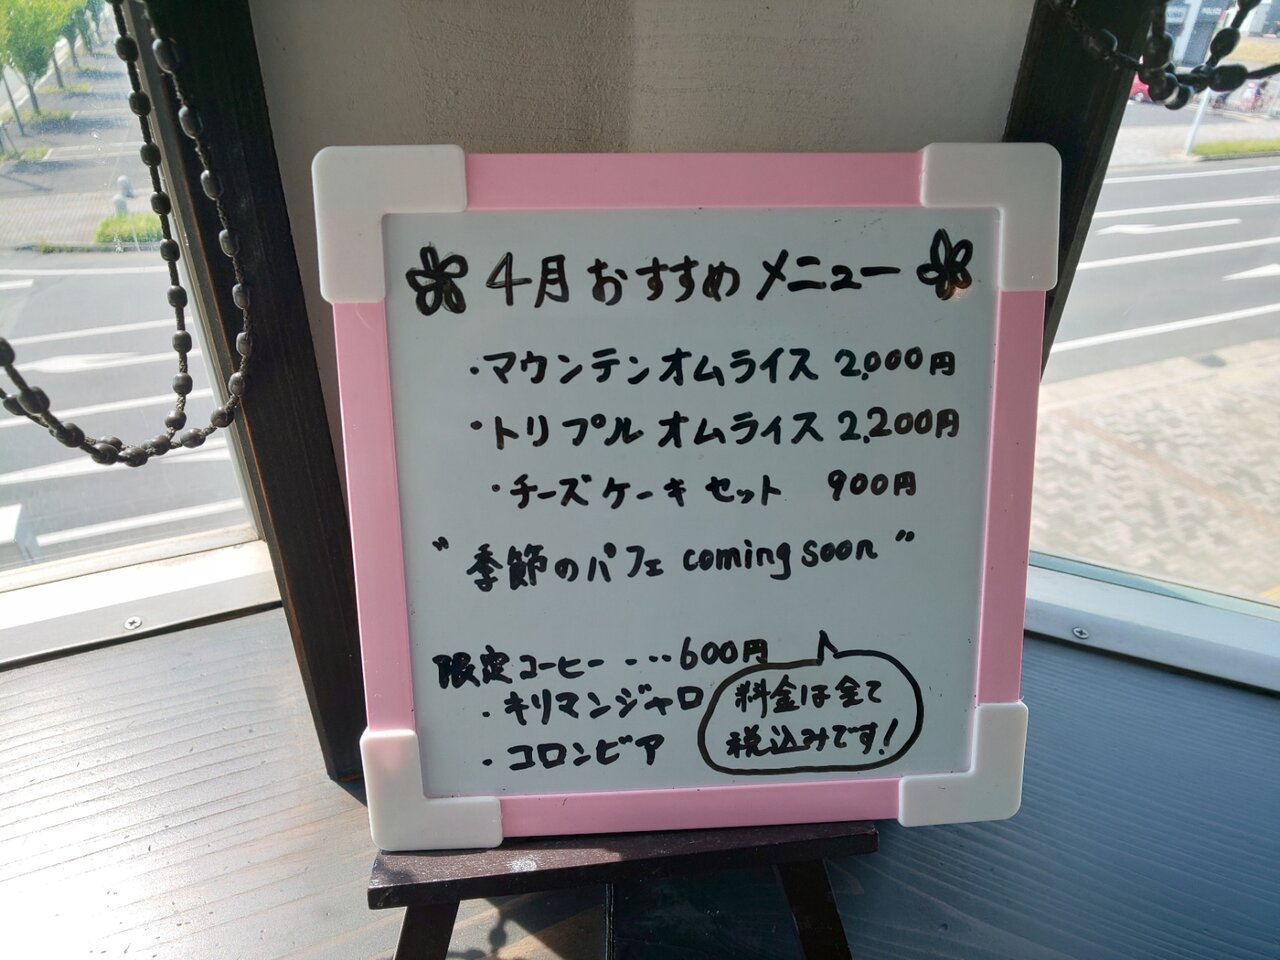 4月おすすめメニュー
・マウンテンオムライス 2,000円
・トリプルオムライス 2,200円
・チーズケーキセット 900円
"季節のパフェ coming soon"
限定コーヒー ・・・600円
・キリマンジャロ
・コロンビア
料金は全て
税込みです!